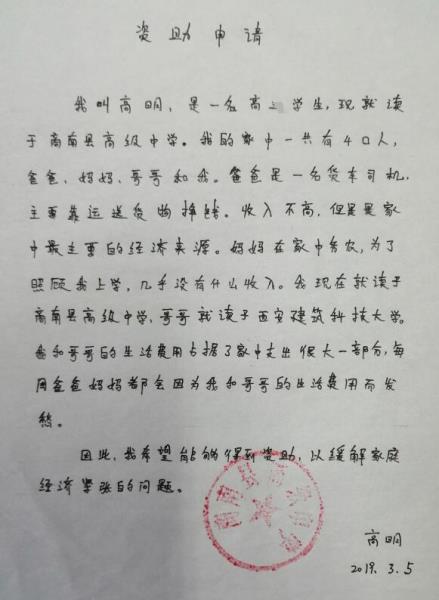 资助申请
我叫高明，是一名高上学生，现就读
于商南县高级中学。我的家中一共有4口人，
爸爸、妈妈、哥哥和我。爸爸是一名货车司机，
主要靠运送货物挣钱。收入不高，但是是家
中最主要的经济来源。妈妈在家中务农，为了
照顾我上学，几乎没有什么收入。我现在就读于
商南县高级中学，哥哥就读于西安建筑科技大学。
我和哥哥的生活费用占据了家中支出很大一部分，每
周爸爸妈妈都会因为我和哥哥的生活费用而发
愁。
因此，我希望能够得到资助，以缓解家庭
经济紧张的问题。
高明
2019.3.5